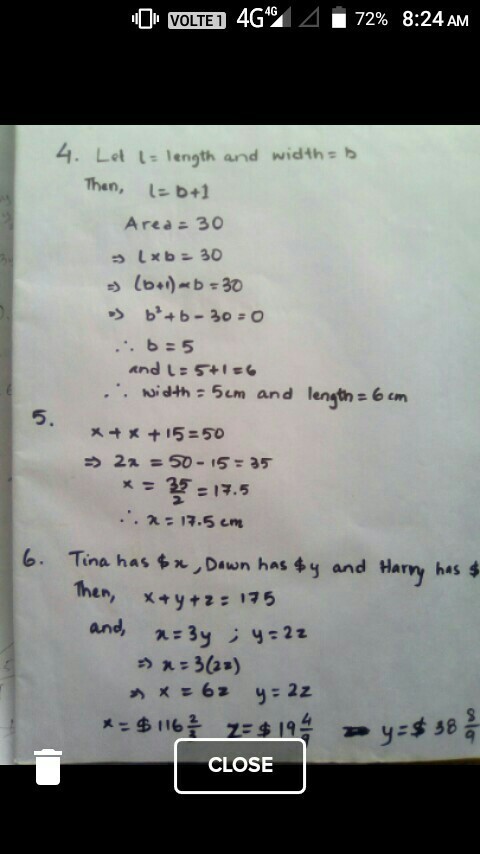 VOLTE 1 4G 4G 72% 8:24 AM
4. Let l = length and width = b
Then, l = b+1
Area = 30
⇒ l × b = 30
⇒ (b+1) × b = 30
⇒ b² + b - 30 = 0
∴ b = 5
and l = 5+1 = 6
∴ width = 5cm and length = 6 cm
5.
x + x + 15 = 50
⇒ 2x = 50 - 15 = 35
x = 35/2 = 17.5
∴ x = 17.5 cm
6. Tina has $x, Dawn has $y and Harry has $
Then, x + y + z = 175
and, x = 3y ; y = 2z
⇒ x = 3(2z)
⇒ x = 6z y = 2z
x = $ 116 2/3 z = $ 19 4/9 y = $ 38 8/9
CLOSE